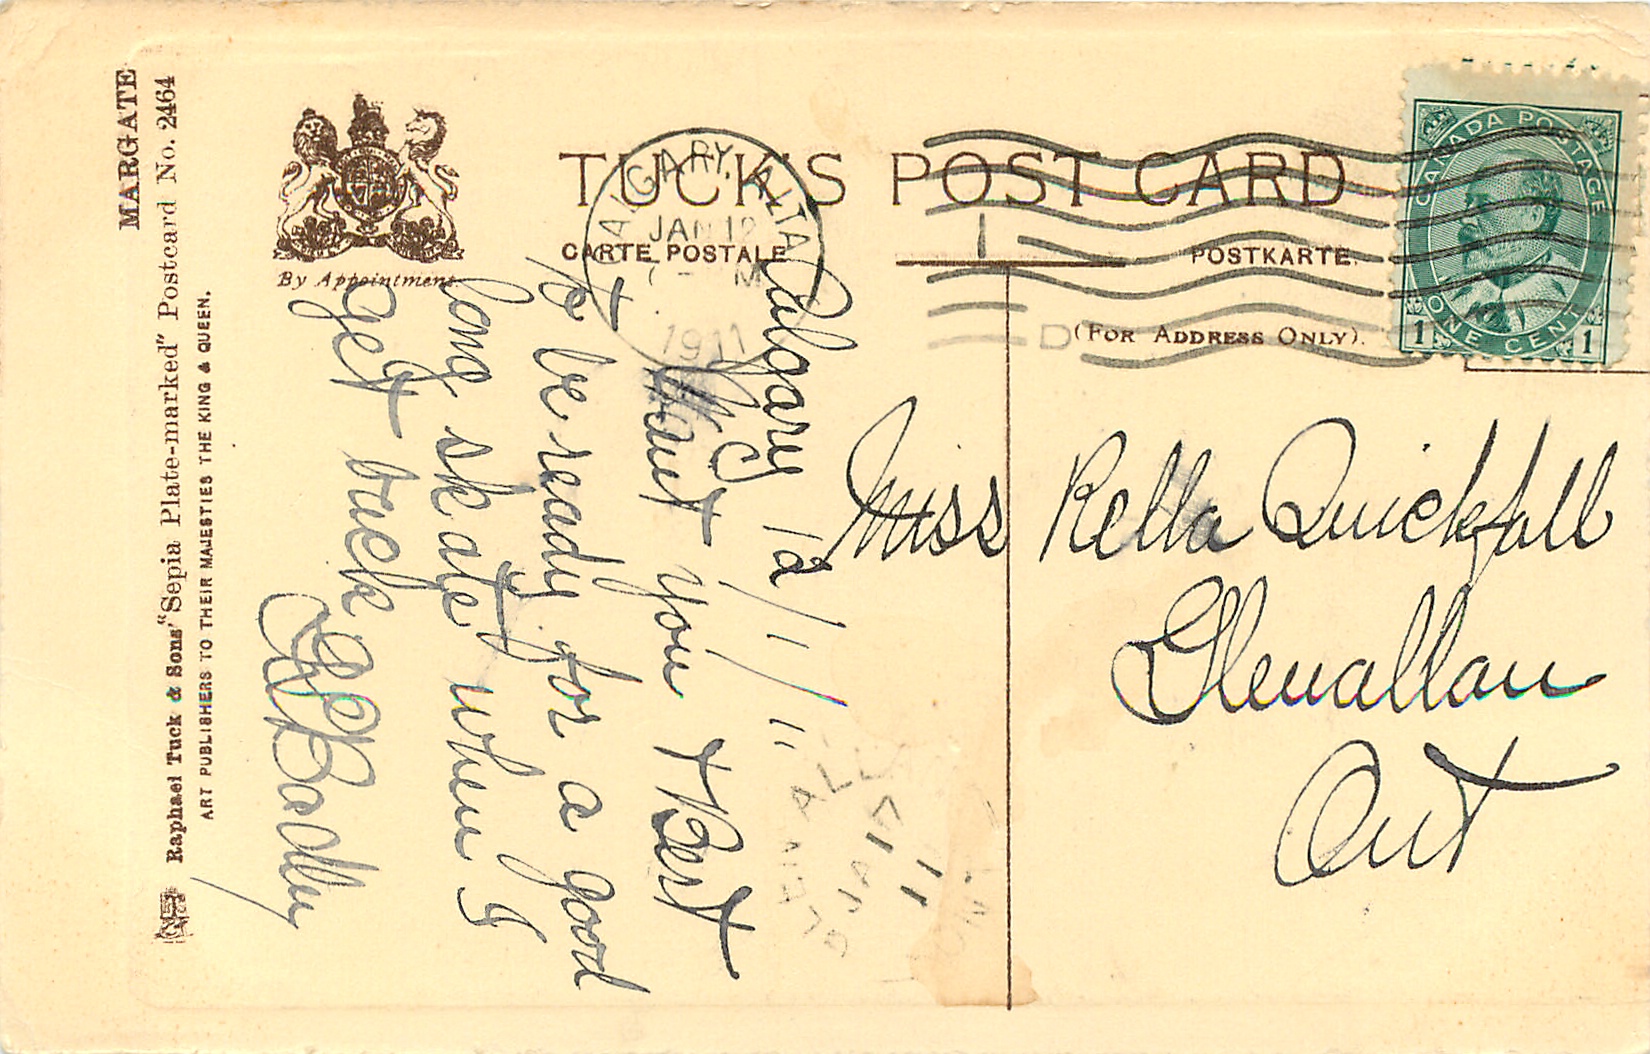 MARGATE
Raphael Tuck & Sons' "Sepia Plate-marked" Postcard No. 2464
ART PUBLISHERS TO THEIR MAJESTIES THE KING & QUEEN.
By Appointment
TUCK'S POST CARD
CARTE POSTALE
POSTKARTE.
(FOR ADDRESS ONLY).
CALGARY, ALTA
JAN 12
M
1911
1
D
CANADA POSTAGE
ONE CENT
1 1
Calgary 12/1/11
Want you & Bert
to be ready for a good
long skate when I
get back
Bradley
Miss Rella Quickfall
Glenallan
Ont
GLEN ALLAN
JA 17
11
ONT